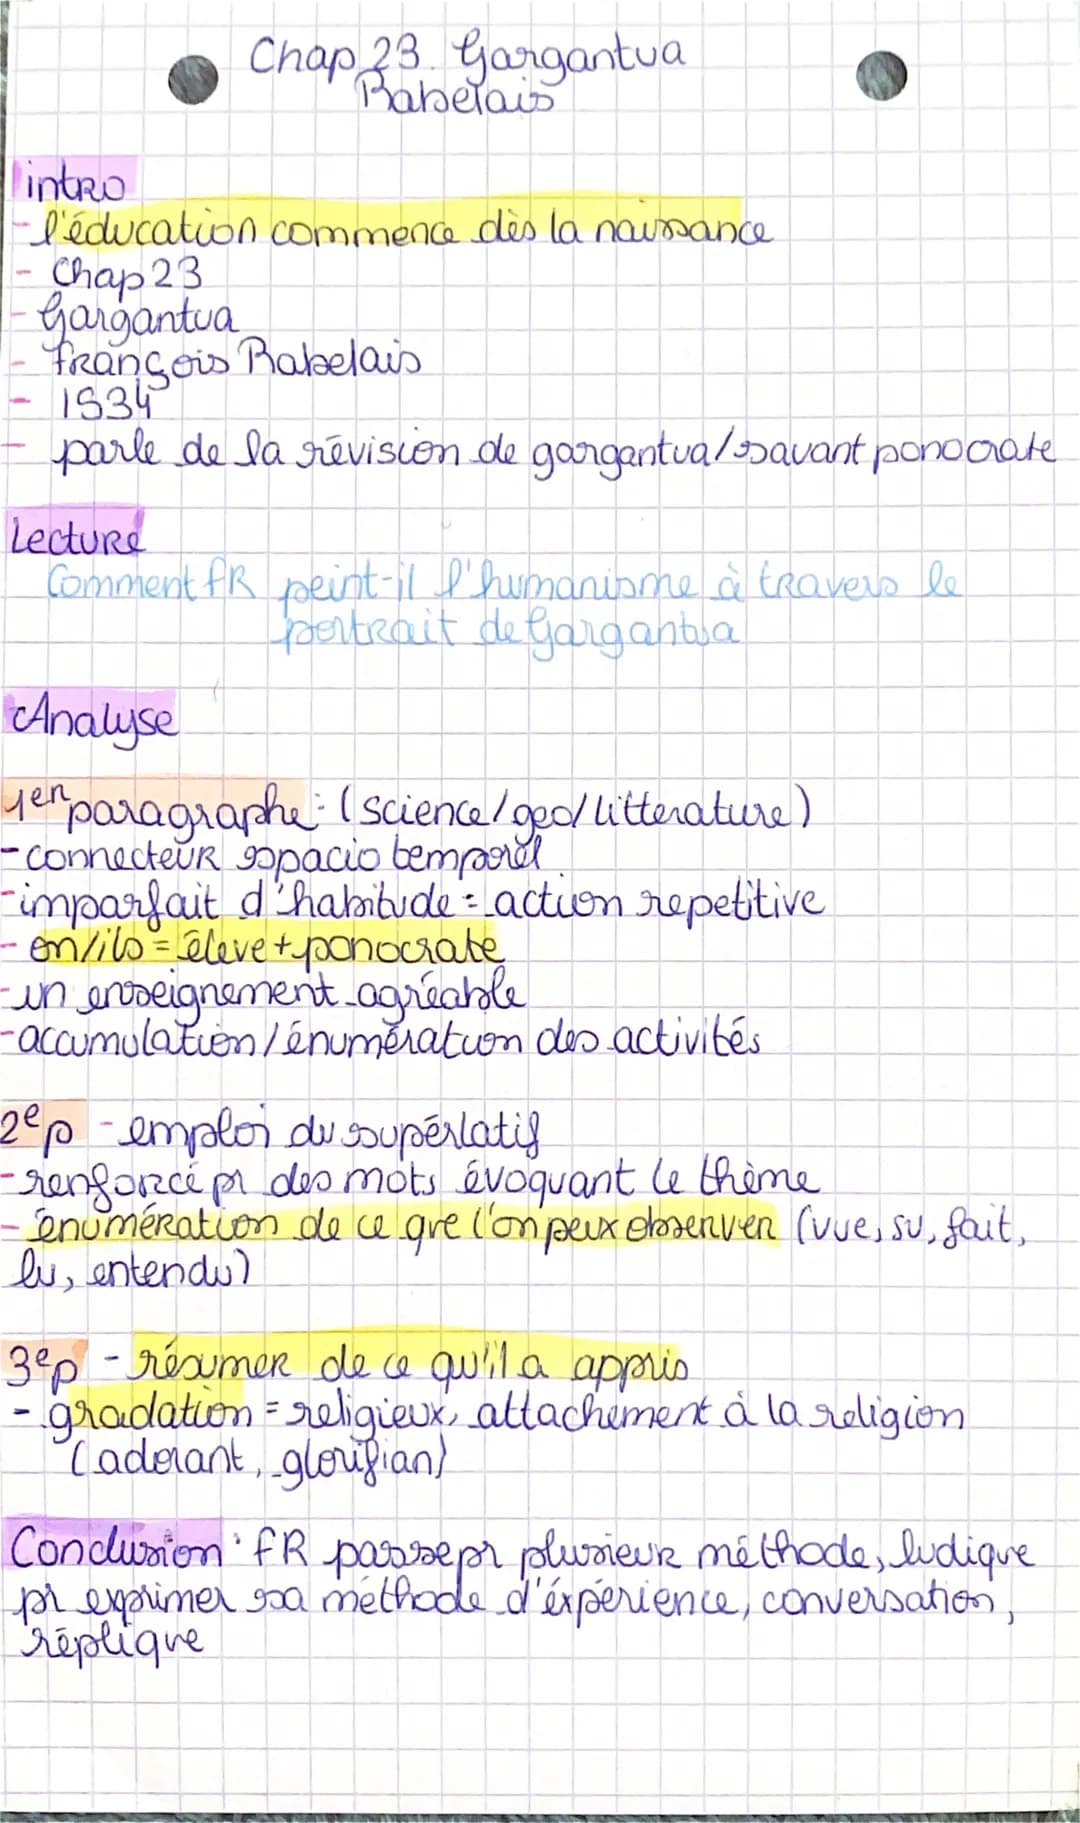 Chap 23. Gargantua
Rabelais
intro
- l'éducation commence dès la naissance
- Chap 23
- Gargantua
- François Rabelais
- 1534
- parle de la révision de gargantua/savant ponocrate
Lecture
Comment FR peint-il l'humanisme à travers le
portrait de Gargantua
Analyse
1er paragraphe : (science/geo/litterature)
- connecteur spacio temporel
- imparfait d'habitude = action repetitive
- on/ils = éleve + ponocrate
- un enseignement agréable
- accumulation/énumération des activités
2e p - emploi du supérlatif
- renforcé pr des mots évoquant le thème
- énumération de ce que l'on peux observer (vue, su, fait,
lu, entendu)
3e p - résumer de ce qu'il a appris
- gradation = religieux, attachement à la religion
(adorant, glorifian)
Conclusion : FR passe pr plusieur méthode, ludique
pr exprimer sa méthode d'éxpérience, conversation,
réplique